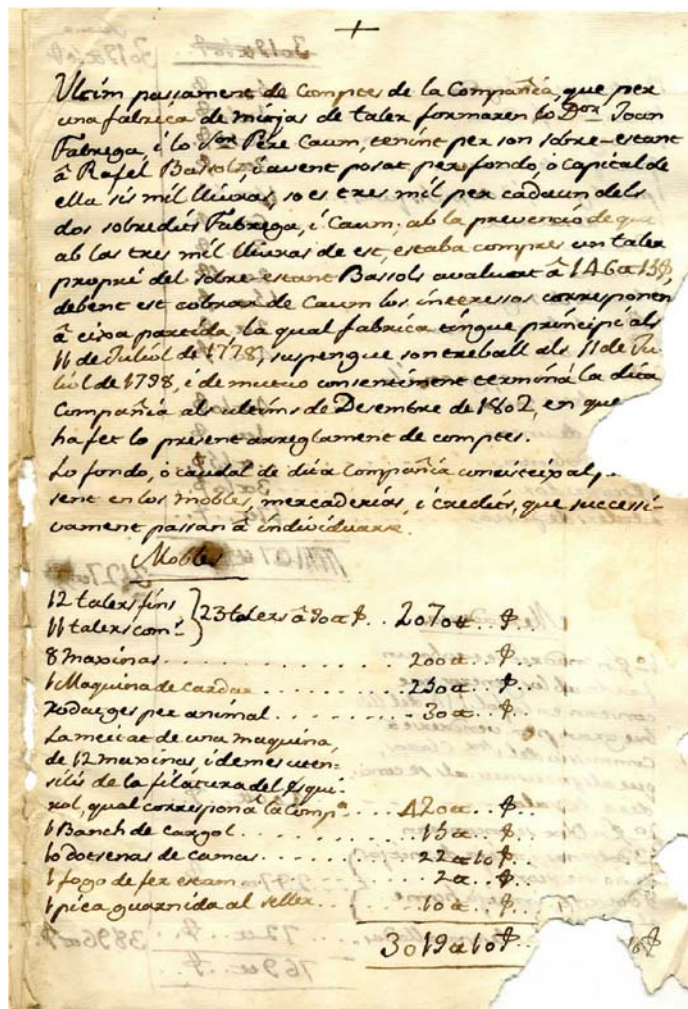 +
Ultim passament de Comptes de la Compañia, que per
una fabrica de mitjas de taler formaren lo Dor. Joan
Fabrega, i lo Sor. Pere Caum, tenint per son sobre-estant
â Rafel Bassols, i avent posat per fondo, o capital de
ella sis mil lliuras, so es tres mil per cadaun dels
dos sobredits Fabrega, i Caum; ab la prevenció de que
ab las tres mil lliuras de est, estaba compres un taler
propri del sobre-estant Bassols avaluat â 146 ₶ 13 ß,
debent est cobrar de Caum los interessos corresponen
â eixa partida, la qual fabrica tingue principi als
11 de Juliol de 1778, suspengue son treball als 11 de Ju
liol de 1798, i de mutuo consentiment terminá la dita
Compañia als ultims de Desembre de 1802, en que
ha fet lo present arreglament de comptes.
Lo fondo, o caudal de dita Compañia consisteix al p
sent en los mobles, mercaderias, i credits, que successi-
vament passan â individuarse.
Mobles
12 talers fins
11 talers coms. } 23 talers â 90 ₶ ß .. 2070 ₶ .. ß ..
8 maxinas .......... 200 ₶ .. ß ..
1 Maquina de cardar .......... 250 ₶ .. ß ..
Rodatges per animal .......... 30 ₶ .. ß ..
La meitat de una maquina,
de 12 maxinas, i demes uten-
silis de la filatura del Esqui-
rol, qual correspon â la Compa. .... 420 ₶ .. ß ..
1 Banch de cargol .......... 15 ₶ .. ß ..
10 dotsenas de camas .......... 22 ₶ 10 ß ..
1 fogo de fer estam .......... 2 ₶ .. ß ..
1 pica guarnida al seller .......... 10 ₶ .. ß ..
3019 ₶ 10 ß